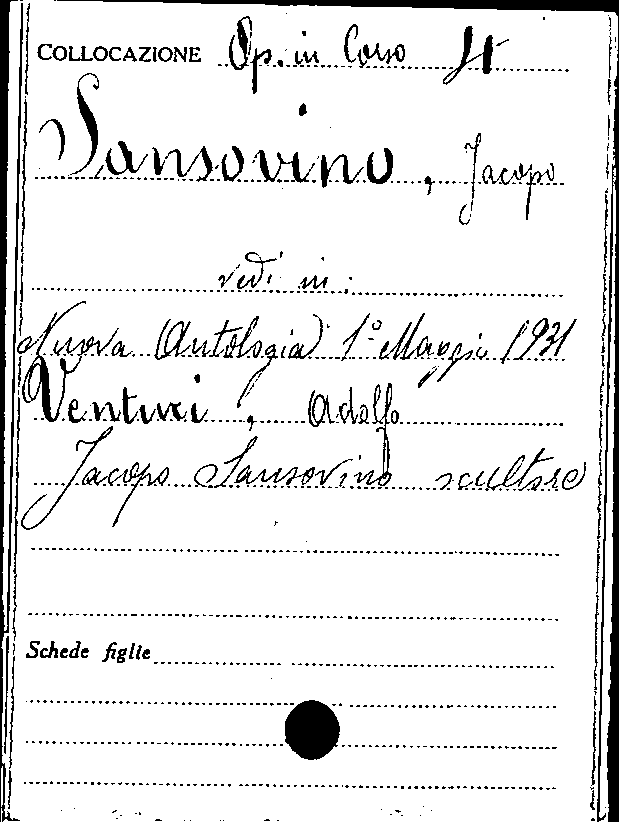 COLLOCAZIONE Op. in Corso 4
Sansovino, Jacopo
vedi in:
Nuova Antologia 1° Maggio 1931
Venturi, Adolfo
Jacopo Sansovino scultore
Schede figlie